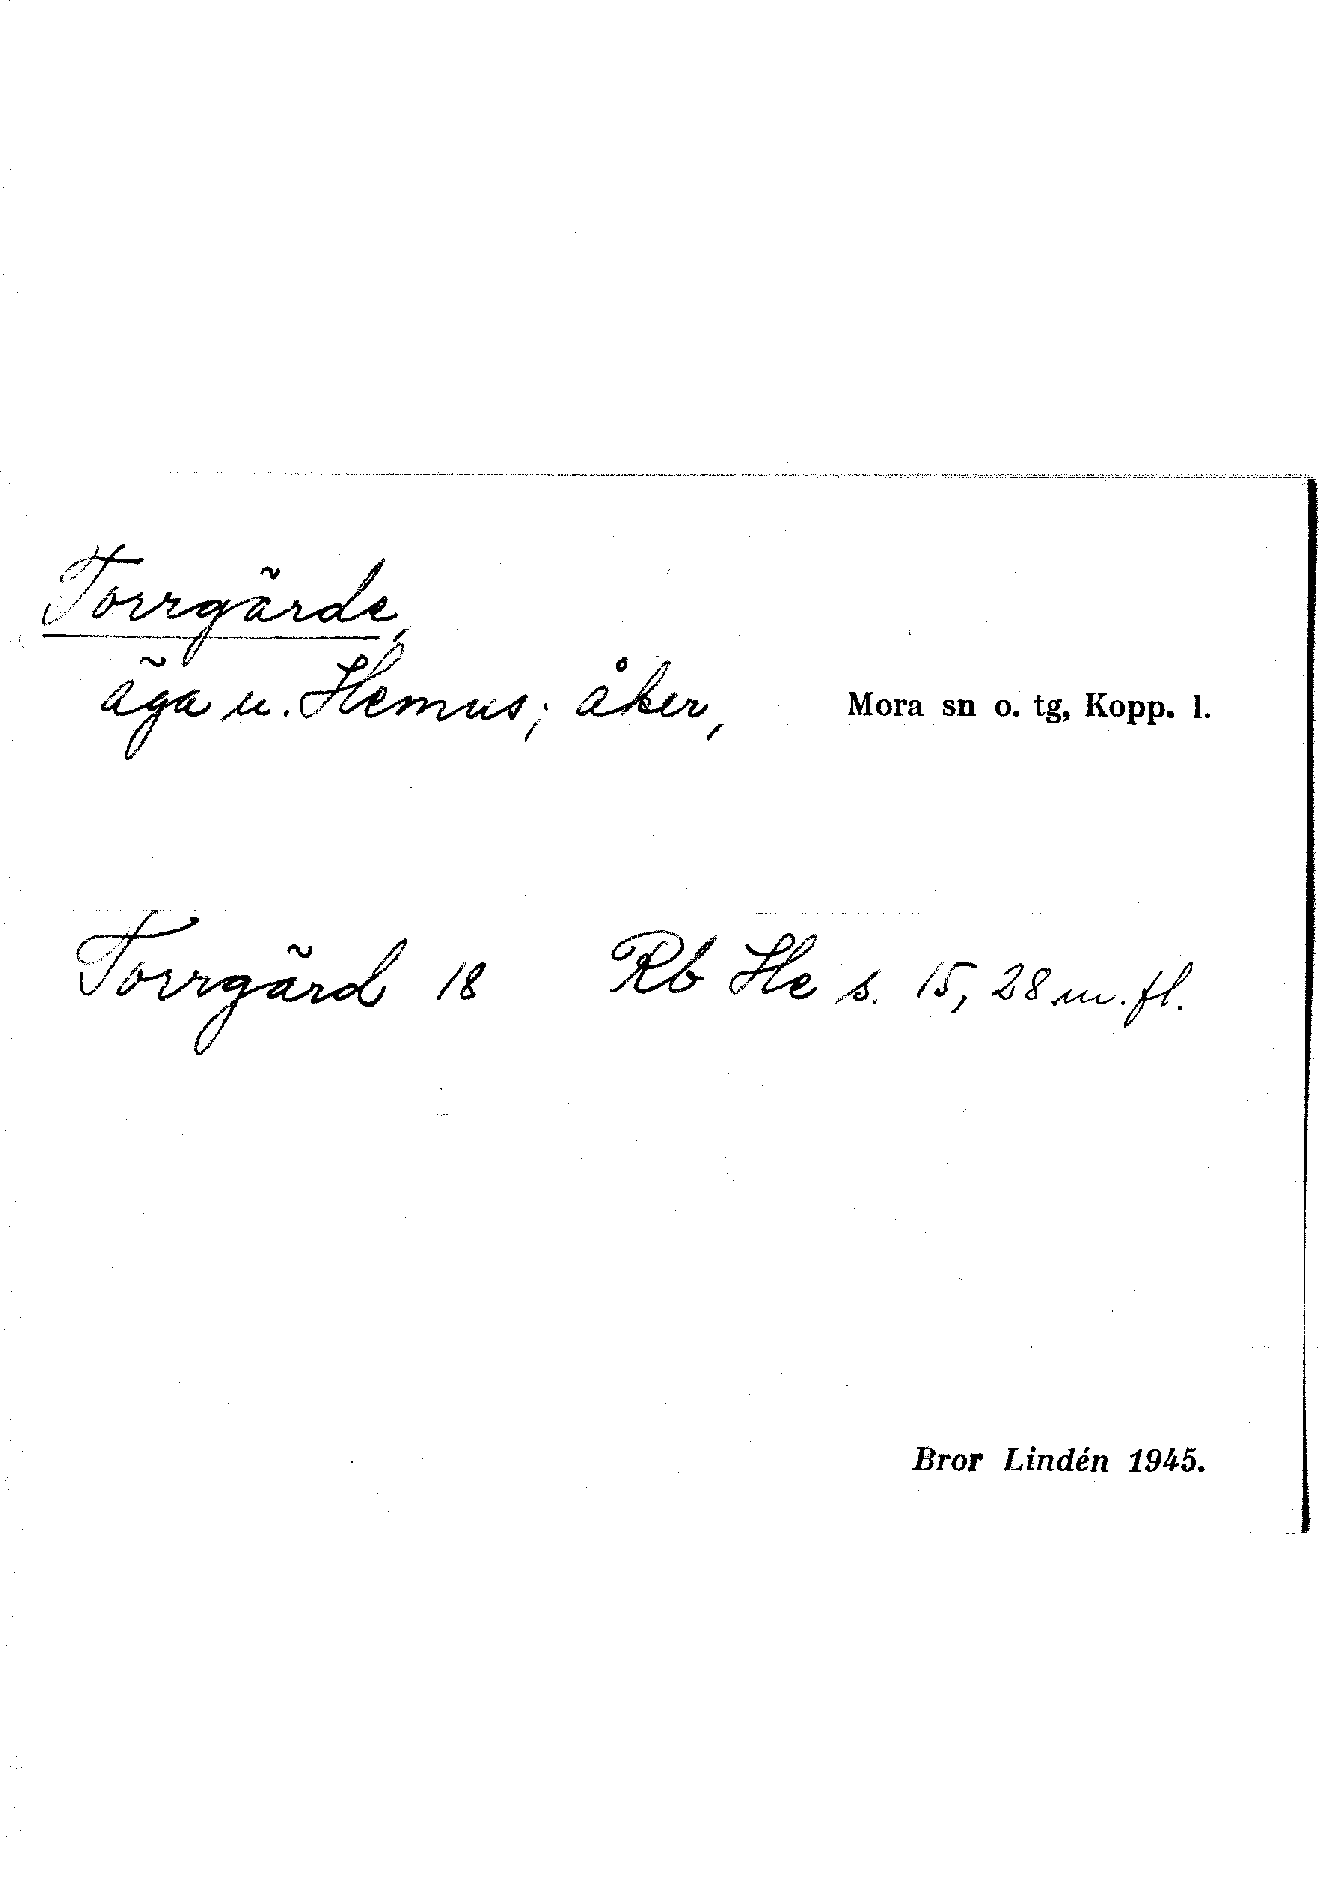 Torrgärde,
äga u. Hemus; åker, Mora sn o. tg, Kopp. l.
Torrgärd 18 Rb He s. 15, 28 m. fl.
Bror Lindén 1945.